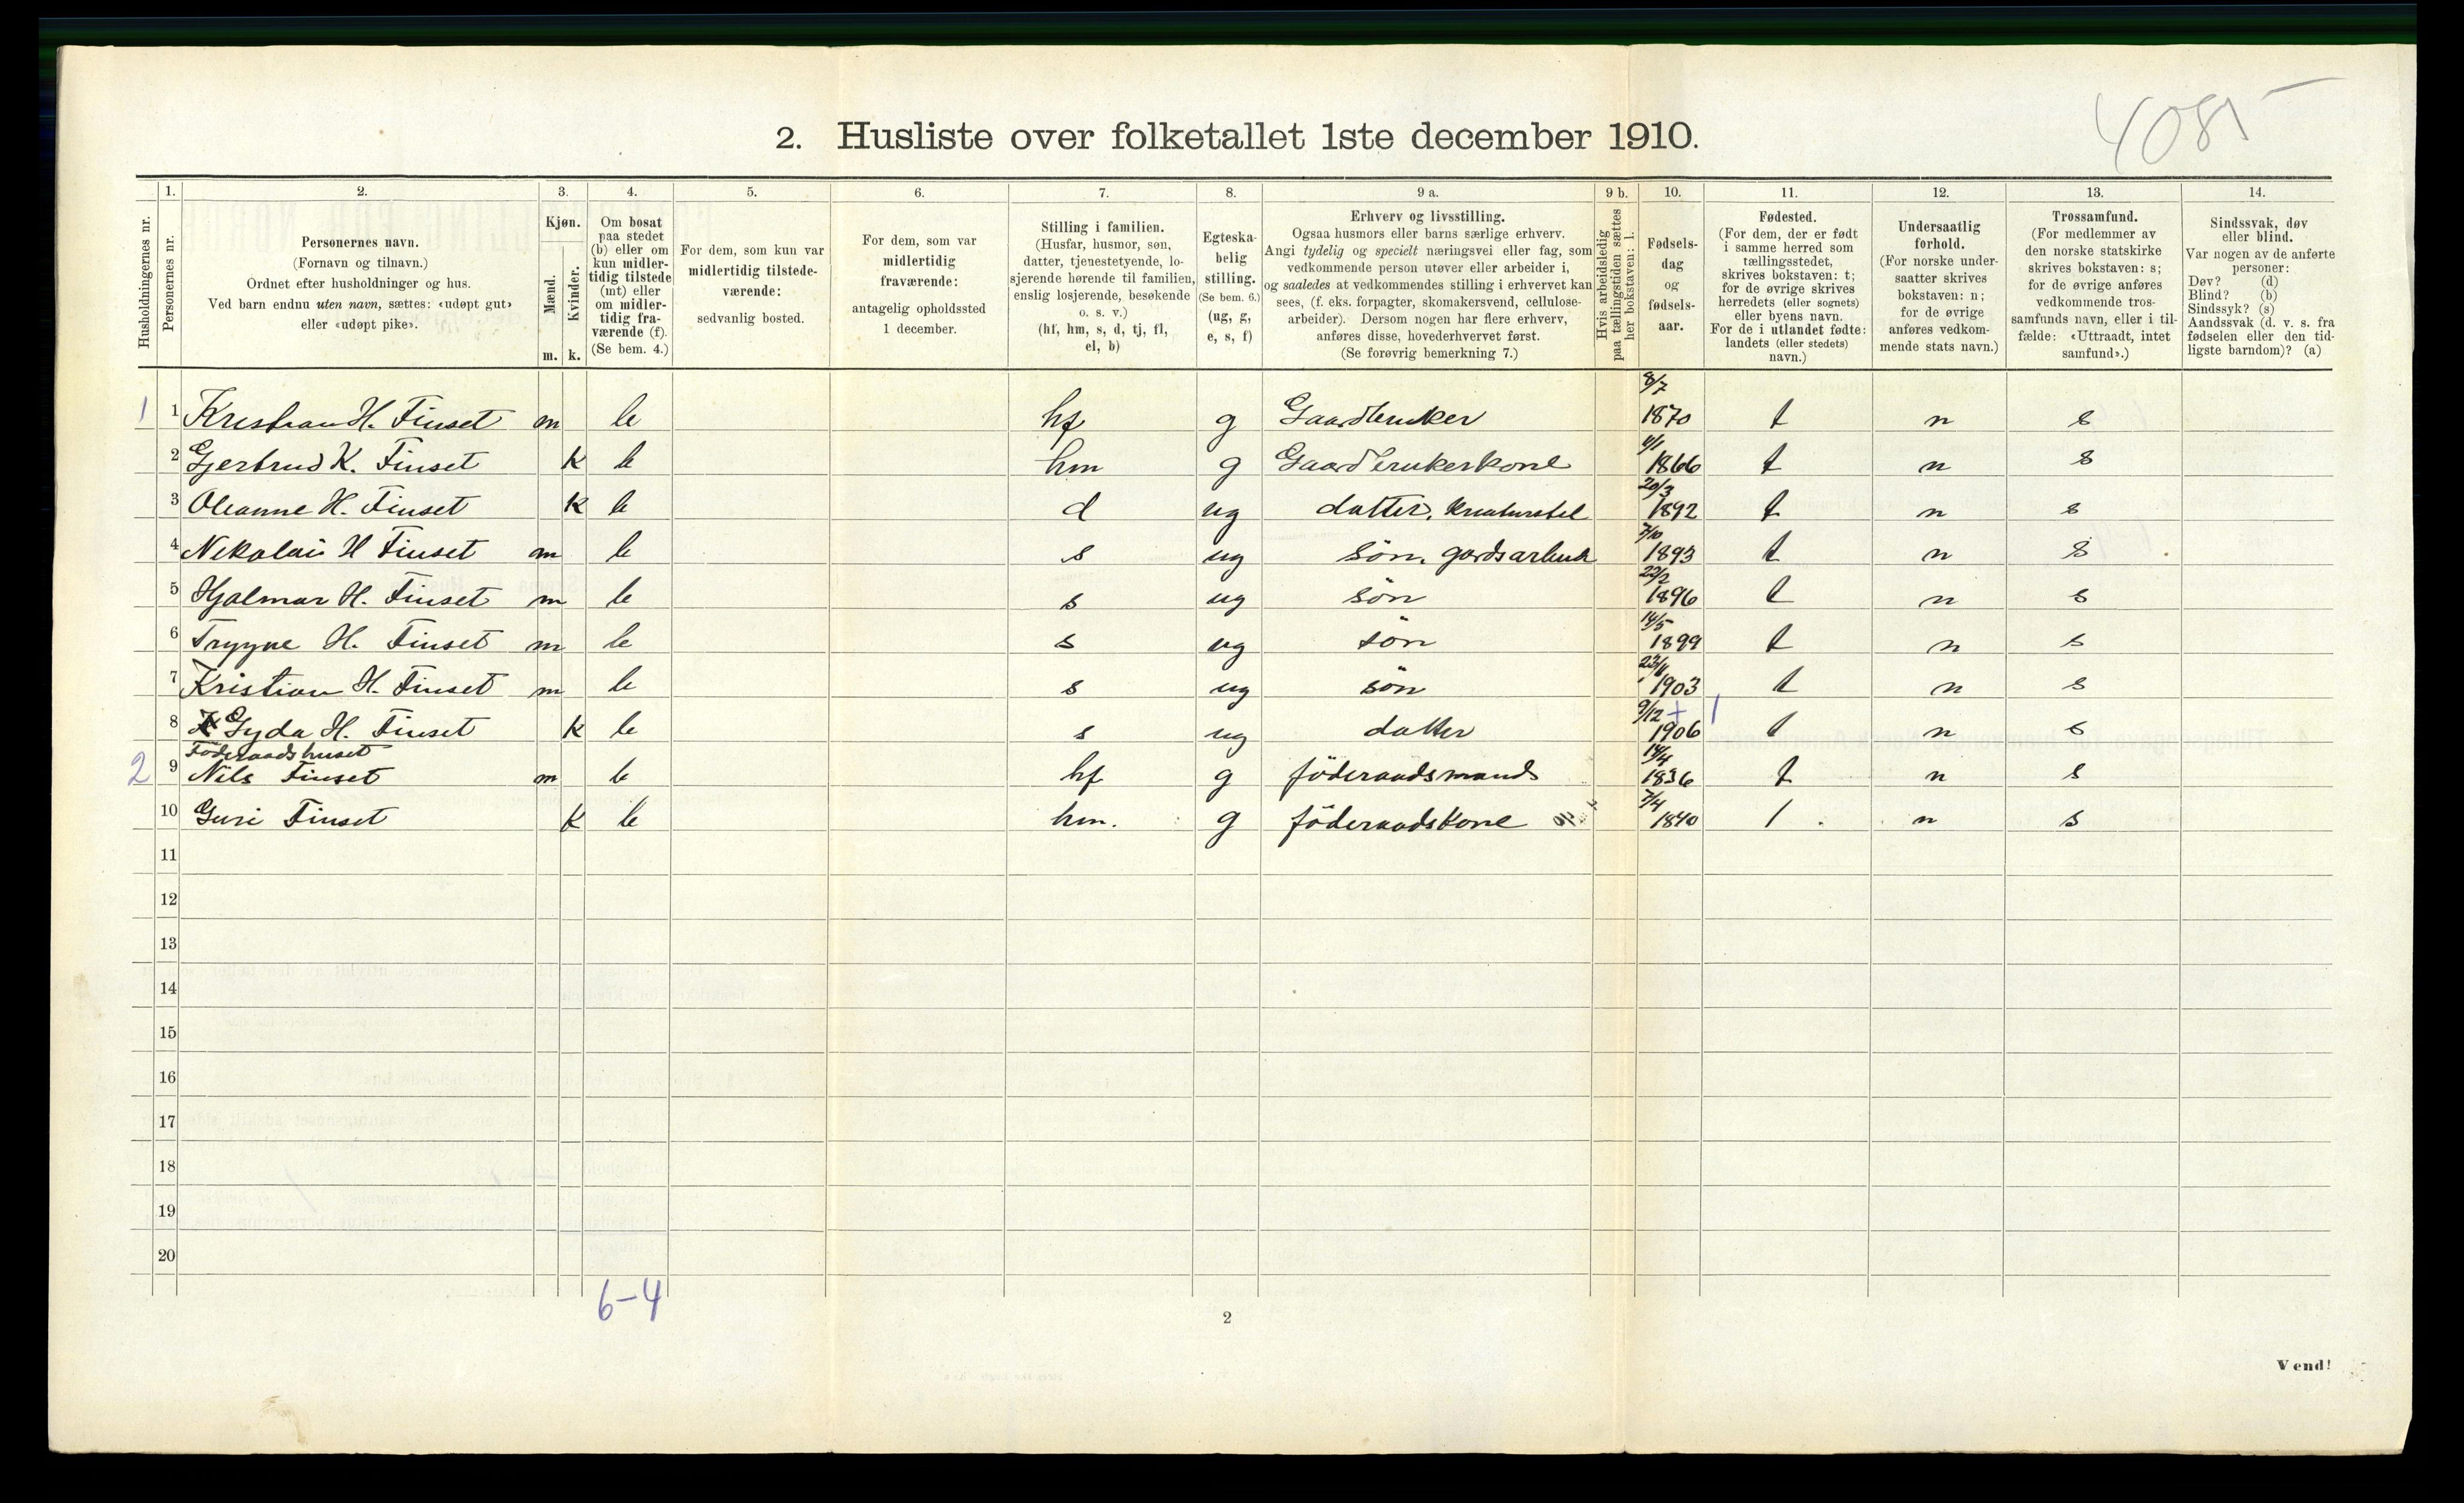 4085
2. Husliste over folketallet 1ste december 1910.
Husholdningernes nr.
1. Personernes nr.
2. Personernes navn. (Fornavn og tilnavn.) Ordnet efter husholdninger og hus. Ved barn endnu uten navn, sættes: «udøpt gut» eller «udøpt pike».
3. Kjøn. Mænd. m. Kvinder. k.
4. Om bosat paa stedet (b) eller om kun midler-tidig tilstede (mt) eller om midler-tidig fra-værende (f). (Se bem. 4.)
5. For dem, som kun var midlertidig tilstede-værende: sedvanlig bosted.
6. For dem, som var midlertidig fraværende: antagelig opholdssted 1 december.
7. Stilling i familien. (Husfar, husmor, søn, datter, tjenestetyende, lo-sjerende hørende til familien, enslig losjerende, besøkende o. s. v.) (hf, hm, s, d, tj, fl, el, b)
8. Egteska-belig stilling. (Se bem. 6.) (ug, g, e, s, f)
9 a. Erhverv og livsstilling. Ogsaa husmors eller barns særlige erhverv. Angi tydelig og specielt næringsvei eller fag, som vedkommende person utøver eller arbeider i, og saaledes at vedkommendes stilling i erhvervet kan sees, (f. eks. forpagter, skomakersvend, cellulose-arbeider). Dersom nogen har flere erhverv, anføres disse, hovederhvervet først. (Se forøvrig bemerkning 7.)
9 b. Hvis arbeidsledig paa tællingstiden sættes her bokstaven: l.
10. Fødsels-dag og fødsels-aar.
11. Fødested. (For dem, der er født i samme herred som tællingsstedet, skrives bokstaven: t; for de øvrige skrives herredets (eller sognets) eller byens navn. For de i utlandet fødte: landets (eller stedets) navn.)
12. Undersaatlig forhold. (For norske under-saatter skrives bokstaven: n; for de øvrige anføres vedkom-mende stats navn.)
13. Trossamfund. (For medlemmer av den norske statskirke skrives bokstaven: s; for de øvrige anføres vedkommende tros-samfunds navn, eller i til-fælde: «Uttraadt, intet samfund».)
14. Sindssvak, døv eller blind. Var nogen av de anførte personer: Døv? (d) Blind? (b) Sindssyk? (s) Aandssvak (d. v. s. fra fødselen eller den tid-ligste barndom)? (a)
1 1 Kristian H. Finset m b hf g Gaardbruker 8/7 1870 t n s
2 Gjertrud K. Finset k b hm g Gaardbrukerkone 4/1 1866 t n s
3 Oleanne H. Finset k b d ug datter, kreaturstel 20/3 1892 t n s
4 Nekolai H Finset m b s ug søn, gardsarbeid 7/10 1893 t n s
5 Hjalmar H. Finset m b s ug søn 22/2 1896 t n s
6 Trygve H. Finset m b s ug søn 14/5 1899 t n s
7 Kristian H. Finset m b s ug søn 1903 t n s
8 Gyda H. Finset k b s ug datter 9/12 + 1 1906 t n s
Föderaadshuset
2 9 Nils Finset m b hf g föderaadsmand 14/4 1836 t n s
10 Guri Finset k b hm. g föderaadskone 7/4 1840 t n s
11
12
13
14
15
16
17
18
19
20
6-4
2
Vend!